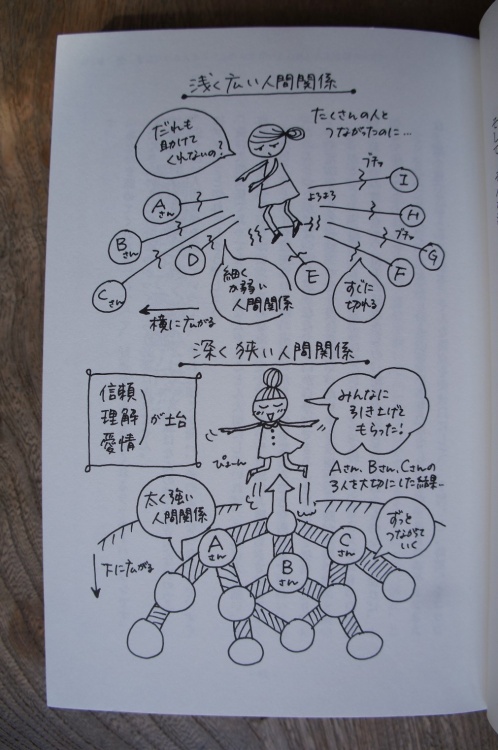 浅く広い人間関係
たくさんの人と
つながったのに…
だれも
助けて
くれないの?
ブチッ
I
よろよろ
A
さん
H
B
さん
ブチッ
G
D
E
F
C
さん
細く
か弱い
人間関係
すぐに
切れる
横に広がる
深く狭い人間関係
信頼
理解
愛情
が土台
みんなに
引き上げて
もらった!
ぴょーん
Aさん、Bさん、Cさんの
3人を大切にした結果…
太く強い
人間関係
ずっと
つながって
いく
A
さん
B
さん
C
さん
下に広がる